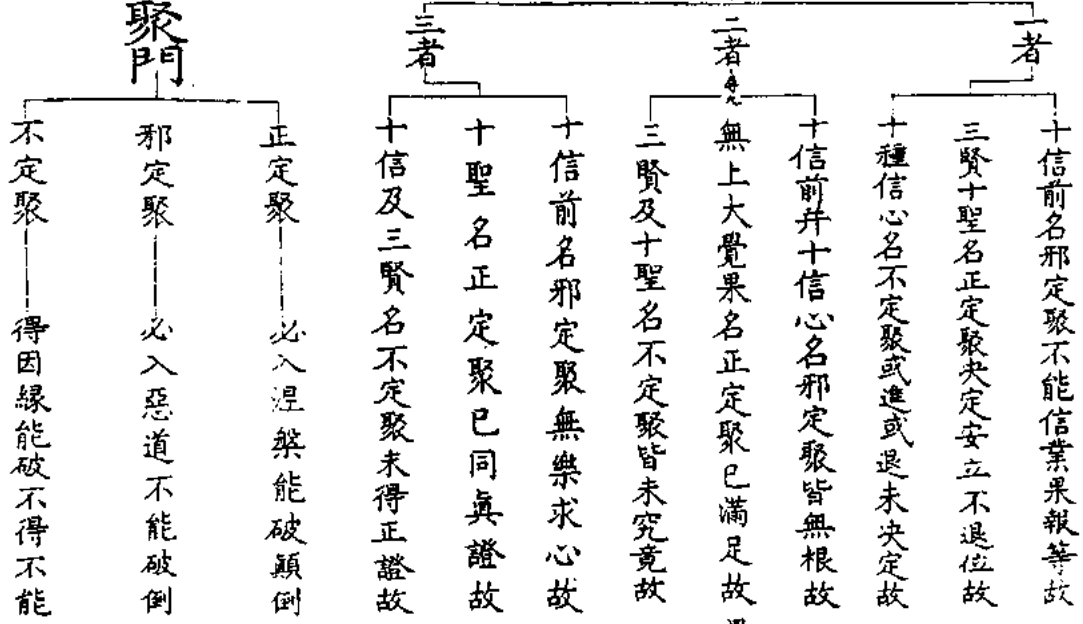 一者
十信前名邪定聚不能信業果報等故
三賢十聖名正定聚决定安立不退位故
十種信心名不定聚或進或退未决定故
二者
十信前并十信心名邪定聚皆無根故
無上大覺果名正定聚已滿足故
三賢及十聖名不定聚皆未究竟故
三者
十信前名邪定聚無樂求心故
十聖名正定聚已同眞證故
十信及三賢名不定聚未得正證故
聚門
正定聚
必入涅槃能破顚倒
邪定聚
必入惡道不能破倒
不定聚
得因緣能破不得不能